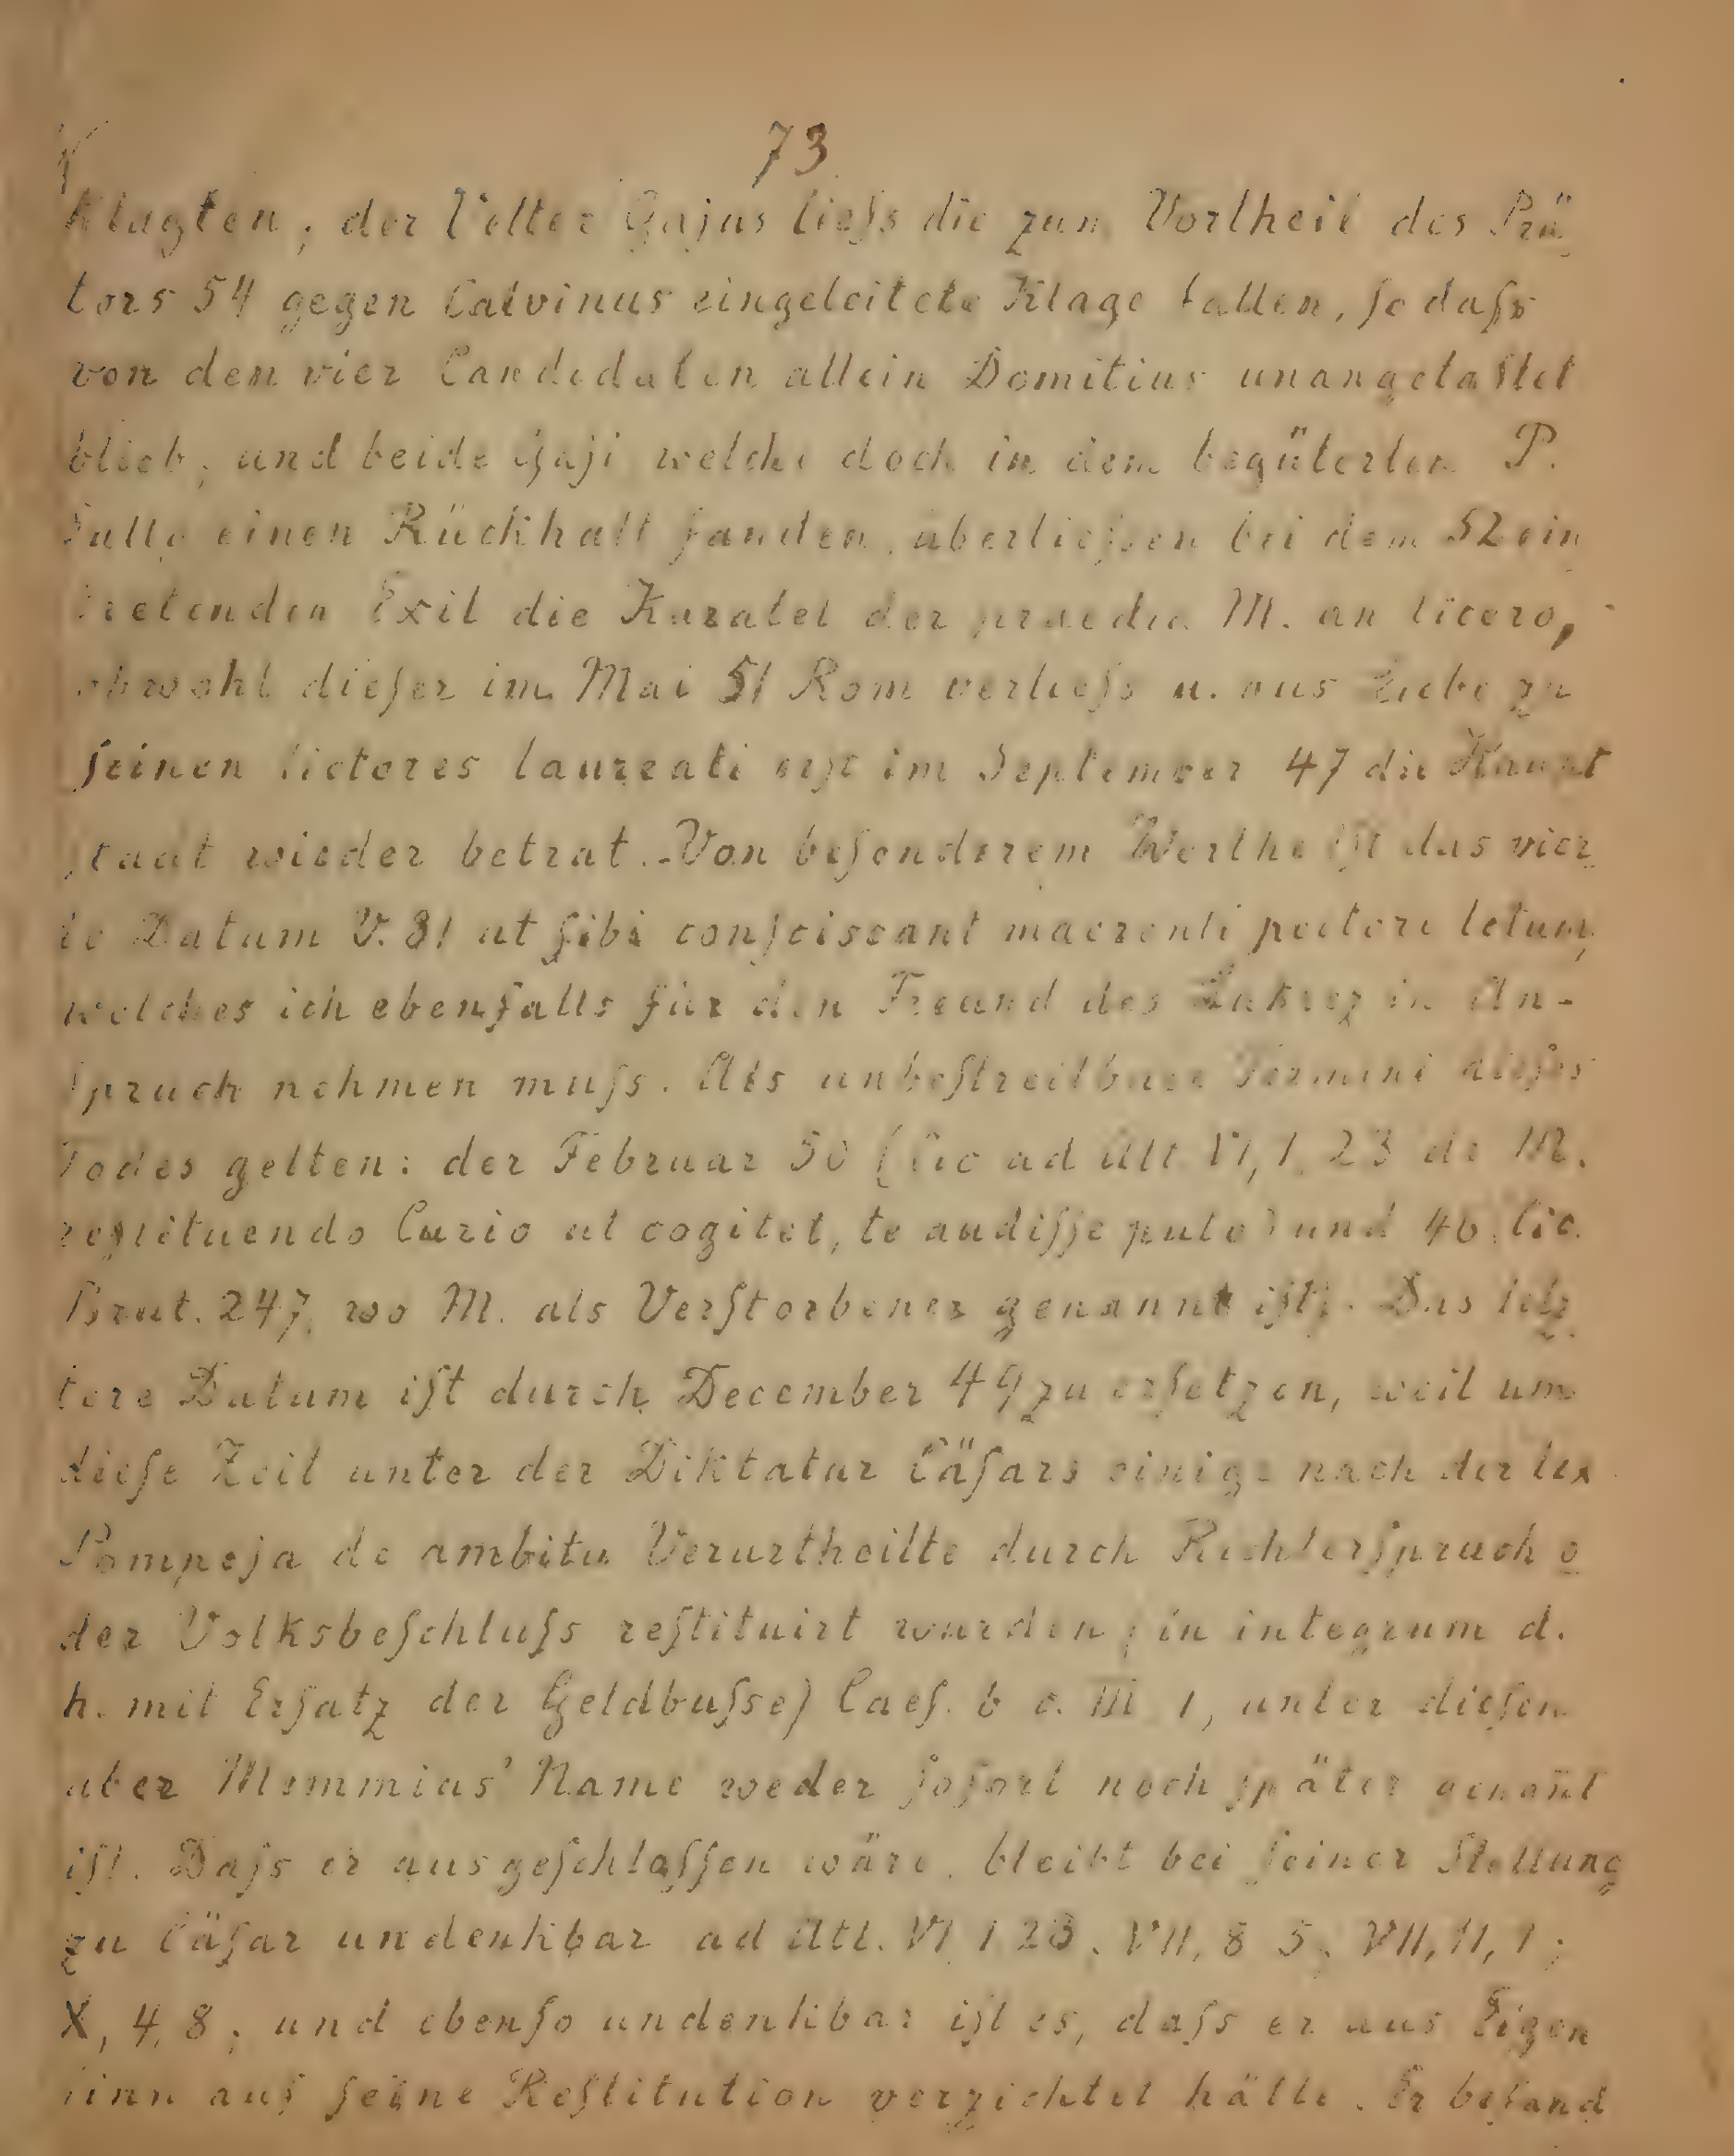 73
klagten; der Vetter Gajus lieſs die zum Vortheil des Prä
tors 54 gegen Calvinus eingeleitete Klage fallen, ſo daſs
von den vier Candidaten allein Domitius unangetaſtet
blieb; und beide Gaji welche doch in dem begüterten P.
Sulla einen Rückhalt fanden, überlieſsen bei dem 52 ein
tretenden Exil die Kuratel der praedia M. an Cicero,
obwohl dieſer im Mai 51 Rom verlieſs u. aus Liebe zu
ſeinen lictores laureati erſt im September 47 die Haupt
ſtadt wieder betrat. - Von beſonderem Werthe iſt das vier
te Datum V. 81 ut ſibi conſciscant maerenti pectore letum,
welches ich ebenfalls für den Freund des Lukrez in An-
ſpruch nehmen muſs. Als unbeſtreitbare Termini dieſes
Todes gelten: der Februar 50 (Cic ad Att. VI, 1, 23 de M.
reſtituendo Curio ut cogitet, te audiſſe puto) und 46 (Cic.
Brut. 247, wo M. als Verſtorbener genannt iſt). Das letz
tere Datum iſt durch December 49 zu erſetzen, weil um
dieſe Zeit unter der Diktatur Cäſars einige nach der lex
Pompeja de ambitu Verurtheilte durch Richterſpruch o
der Volksbeſchluſs reſtituirt wurden (in integrum d.
h. mit Erſatz der Geldbuſse) Caeſ. b c. III 1, unter dieſen
aber Memmius' Name weder ſofort noch ſpäter genan̄t
iſt. Daſs er ausgeſchloſſen wäre, bleibt bei ſeiner Stellung
zu Cäſar undenkbar ad Att. VI 1 23; VII, 8 5; VII, 11, 1;
X, 4, 8; und ebenſo undenkbar iſt es, daſs er aus Eigen
ſinn auf ſeine Reſtitution verzichtet hätte. Er befand